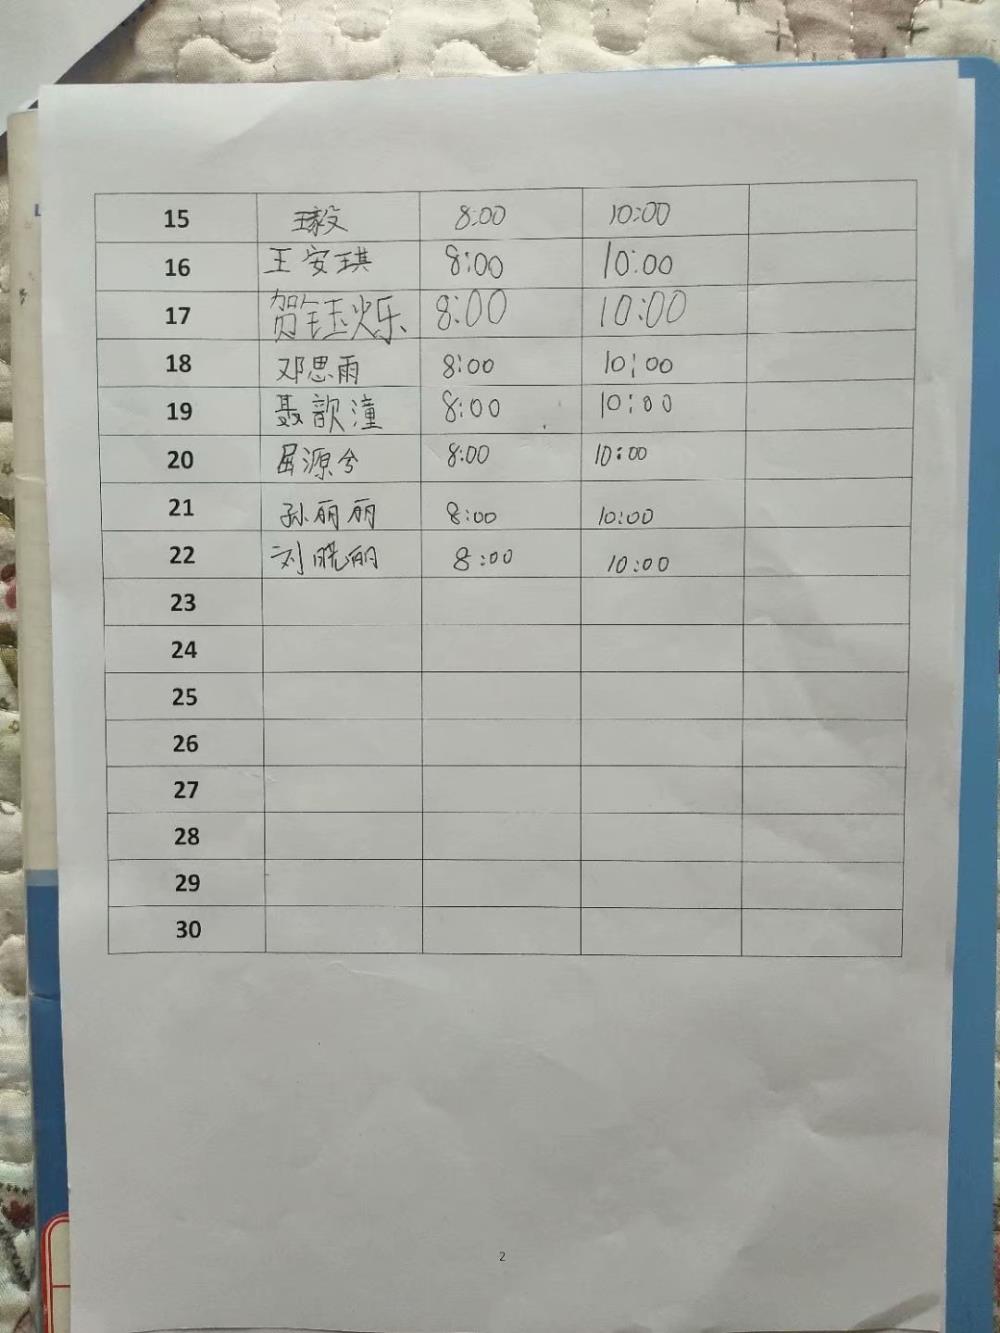 15 王毅 8:00 10:00
16 王安琪 8:00 10:00
17 贺钰烁 8:00 10:00
18 邓思雨 8:00 10:00
19 聂歆潼 8:00 10:00
20 屈源兮 8:00 10:00
21 孙丽丽 8:00 10:00
22 刘晓丽 8:00 10:00
23
24
25
26
27
28
29
30
2